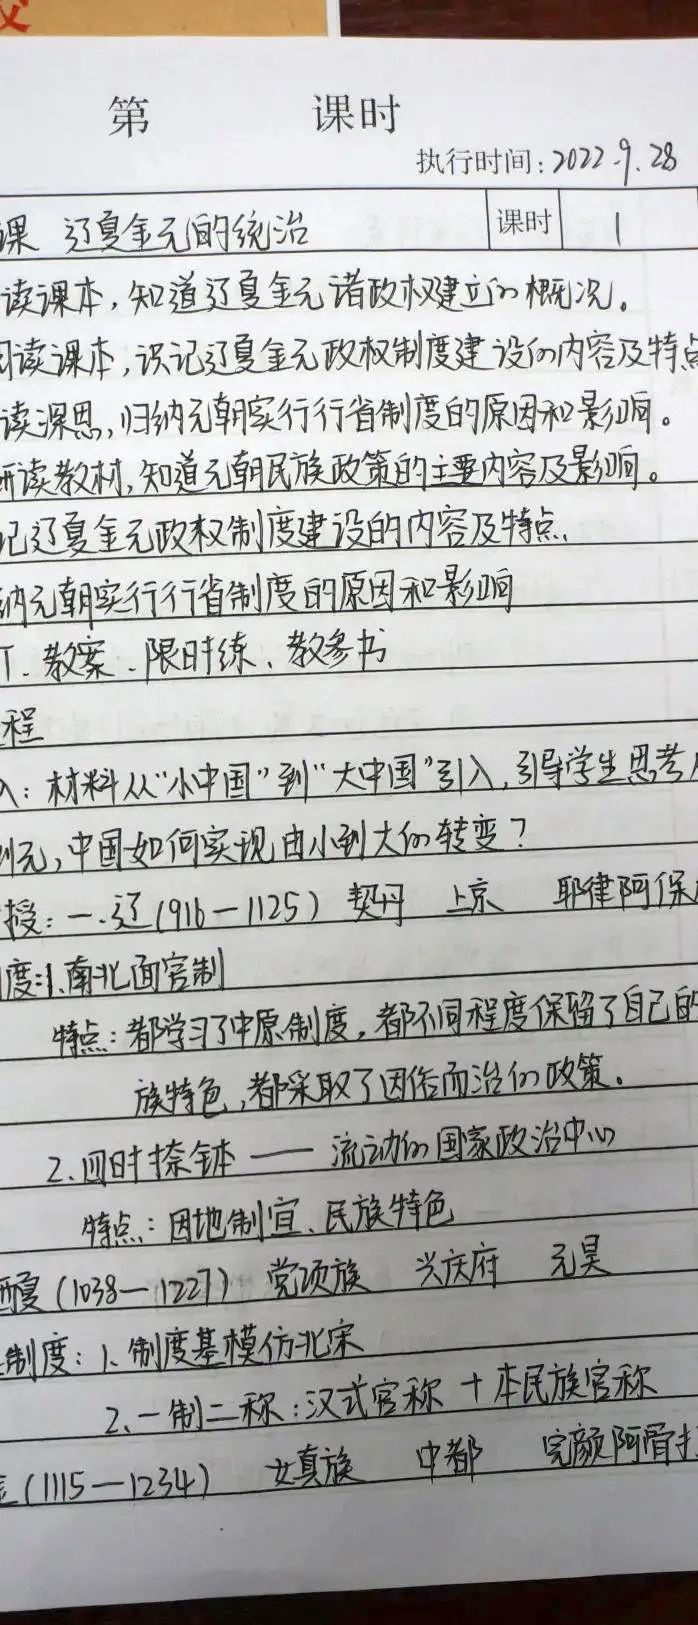 第 课时
执行时间:2022.9.28
课 辽夏金元的统治 课时 1
读课本,知道辽夏金元诸政权建立的概况。
阅读课本,识记辽夏金元政权制度建设的内容及特点
读深思,归纳元朝实行行省制度的原因和影响。
研读教材,知道元朝民族政策的主要内容及影响。
记辽夏金元政权制度建设的内容及特点.
纳元朝实行行省制度的原因和影响
T、教案、限时练、教参书
程
入:材料从“小中国”到“大中国”引入,引导学生思考
到元,中国如何实现由小到大的转变?
授:一.辽(916—1125) 契丹 上京 耶律阿保
度:1.南北面官制
特点:都学习了中原制度,都不同程度保留了自己的
族特色,都采取了因俗而治的政策。
2.四时捺钵——流动的国家政治中心
特点:因地制宜、民族特色
西夏(1038—1227) 党项族 兴庆府 元昊
制度:1.制度基模仿北宋
2.一制二称:汉式官称+本民族官称
金(1115—1234) 女真族 中都 完颜阿骨打